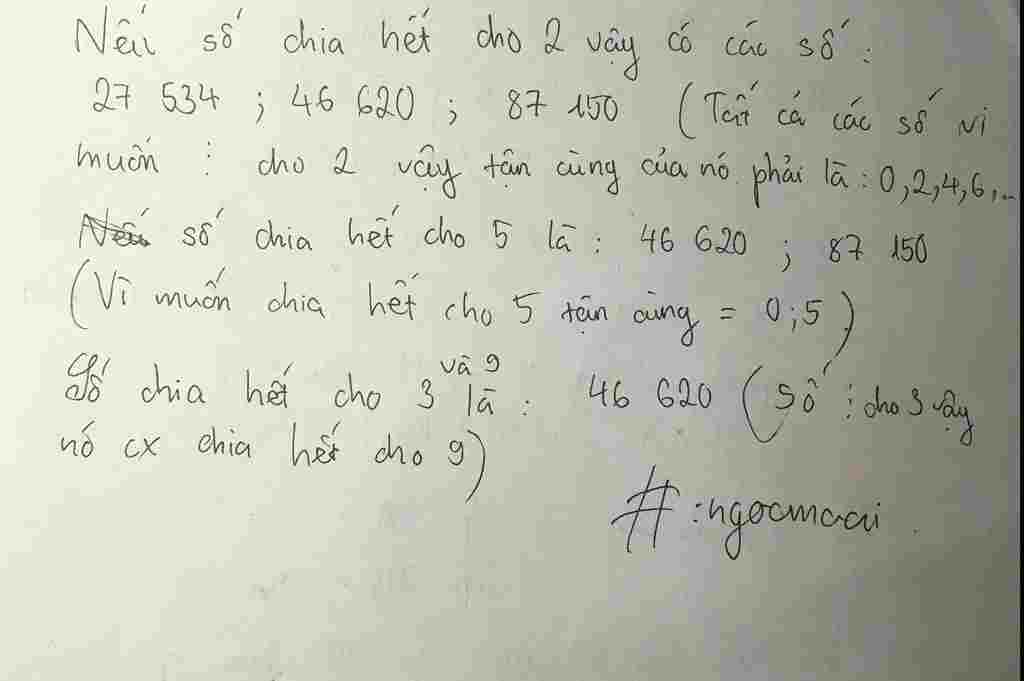 Nếu số chia hết cho 2 vậy có các số:
27 534 ; 46 620 ; 87 150 (Tất cả các số vì
muốn ⋮ cho 2 vậy tận cùng của nó phải là: 0,2,4,6,...
Nếu số chia hết cho 5 là: 46 620 ; 87 150
(Vì muốn chia hết cho 5 tận cùng = 0;5)
Số chia hết cho 3 và 9 là: 46 620 (Số ⋮ cho 3 vậy
nó cx chia hết cho 9)
#:ngocmaai